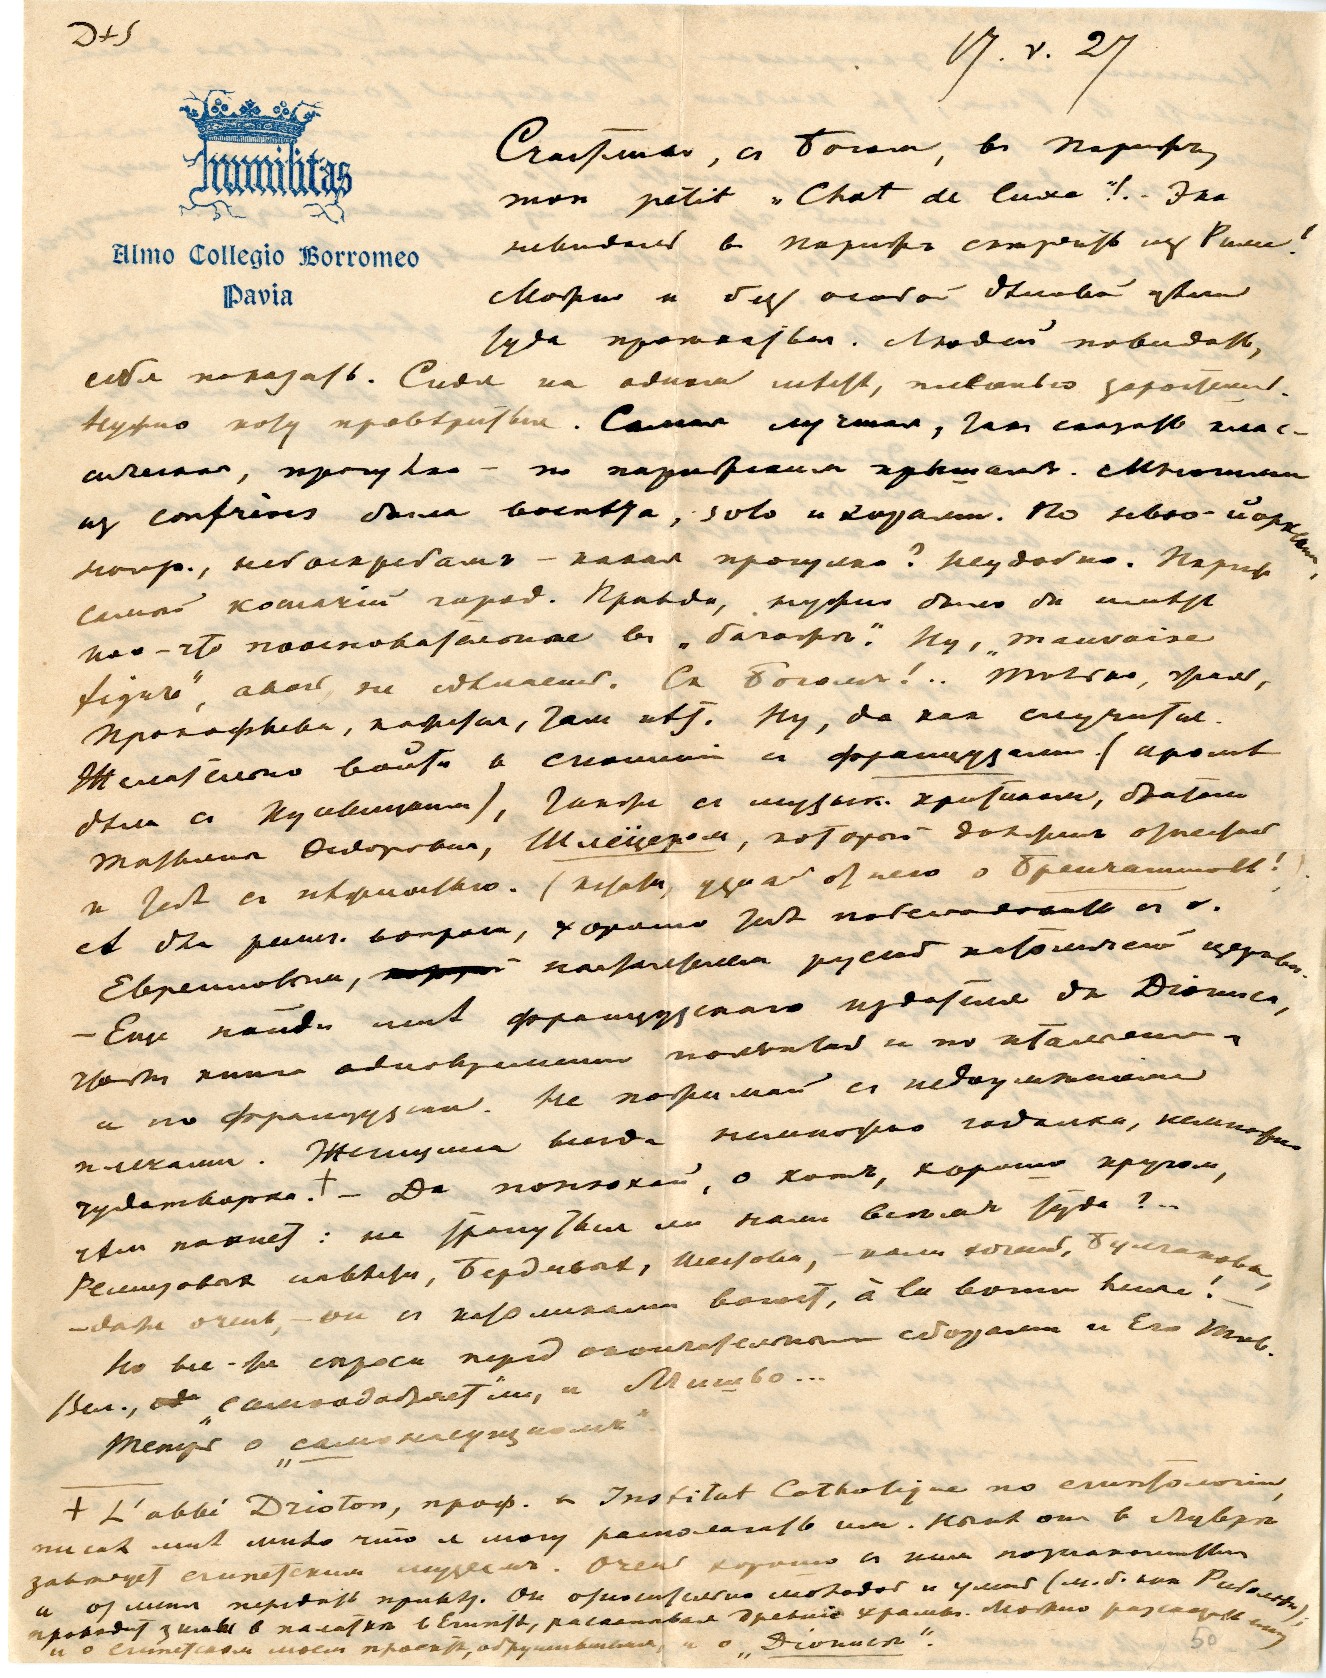 D+S
17. V. 27
humilitas
Almo Collegio Borromeo
Pavia
Счастливо, с Богом, в Париж,
mon petit „Chat de luxe"!.. Эка
невидаль в Париж смотреть из Рима!
Можно и без особой деловой цели
туда прокатиться. Людей повидать,
себя показать. Сидя на одном месте, плесенью зарастешь.
Нужно носу проветриться. Самая лучшая, так сказать клас-
сическая, прогулка – по парижским крышам. Многими
из confrères была воспета, хотя и ходами. По нью-йоркским,
напр., небоскребам – какая прогулка? Неудобно. Париж
самый кошачий город. Правда, нужно было бы иметь
кое-что поосновательнее в „багаже". Ну, „mauvaise
figure", авось, не сделаешь. С Богом!.. Только, жаль,
Прокофьева, кажется, там нет. Ну, да как случится.
Желательно войти в сношения с французами (кроме
дела с Кусевицким), также с музык. критиком, братом
Татьяны Федоровны, Шлёцером, который должен отнестись
к тебе с нежностью. (Кстати, узнай от него о Бренчаниновѣ!)
А для религ. вопроса, хорошо тебе побеседовать с о.
Евреиновым, настоятелем русской католической церкви.
– Еще найди мне французского издателя для Diониса,
чтобы книга одновременно появилась и по итальянски,
и по французски. Не пожимай с недоумением
плечами. Женщина всегда немножко гадалка, немножко
чудотворка.† – Да понюхай, о котъ, хорошо кругом,
чем пахнет: не тронуться ли нам всем туда?..
Ремизовых навести, Бердяева, Шестова, – коли хочешь, Булгакова,
– даже очень, – он с католиками воюет, à la bonne heure! –
Но все-же спроси перед окончательными сборами и Его
Вел., „самообожает"
Теперь о „самонасущном"
† L'abbé Drioton, проф. в Institut Catholique по египтологии,
писал мне что я могу располагать им. Ныне он в Лувре
заведует египетским музеем. Очень хорошо с ним познакомиться
и от меня передать привет. Он относительно молодой и умный (м.б. как Риболди);
проводит зимы в палатке в Египте, раскапывая древние храмы. Можно рассказать ему
и о египетском моем проекте, обрушившемся, и о „Dionисе".
50